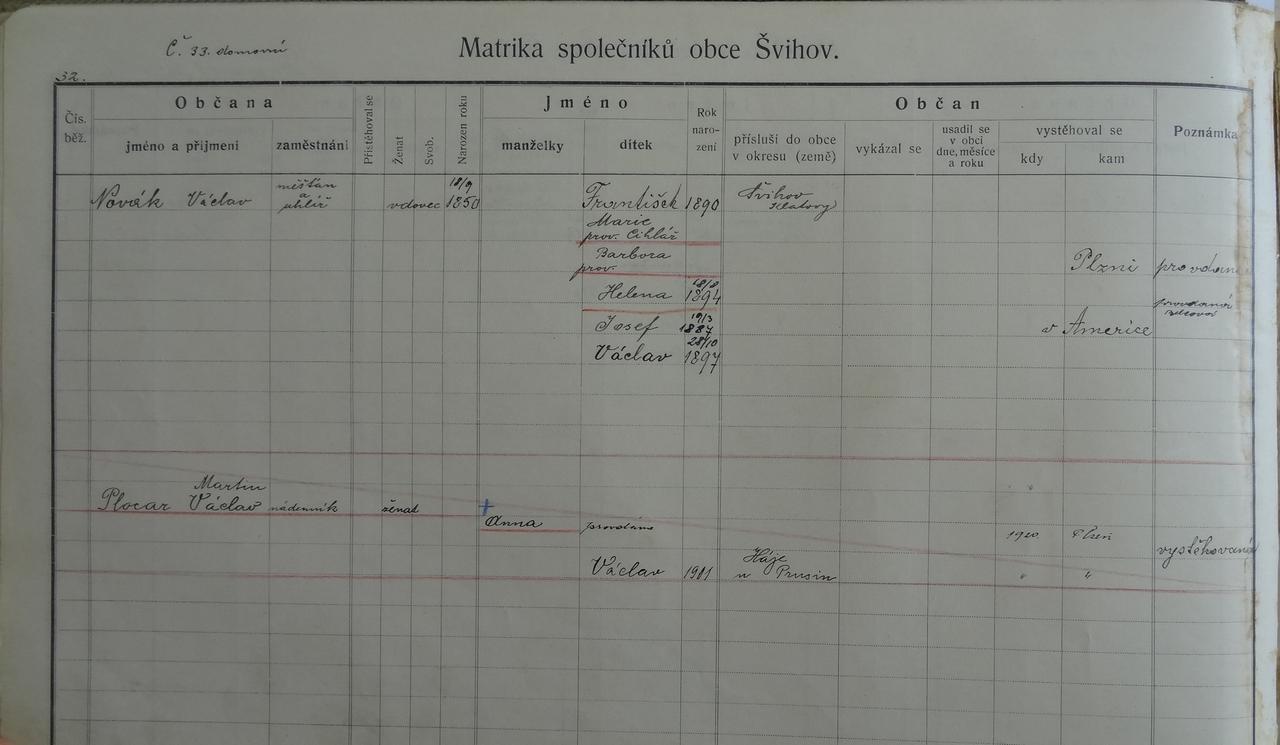 Č. 33. domovní
Matrika společníků obce Švihov.
32.
Čís. běž.
Občana
jméno a přijmení
zaměstnání
Přistěhoval se
Ženat
Svob.
Narozen roku
Jméno
manželky
dítek
Rok naro- zení
Občan
přísluší do obce v okresu (země)
vykázal se
usadil se v obci dne, měsíce a roku
vystěhoval se
kdy
kam
Poznámka
Novák Václav měšťan a uhlíř vdovec 18/9 1850 František 1890 Švihov Klatovy
Marie
prov. Cihlář
Barbora Plzni provdan
prov.
Helena 18/8 1894 provdaná
Josef 19/3 1887 v Americe
Václav 28/10 1897
Martin
Plocar Václav nádenník ženat
+ Anna provdána 1920 Plzeň
vystěhovaná
Václav 1901 Háje u Prusin " "